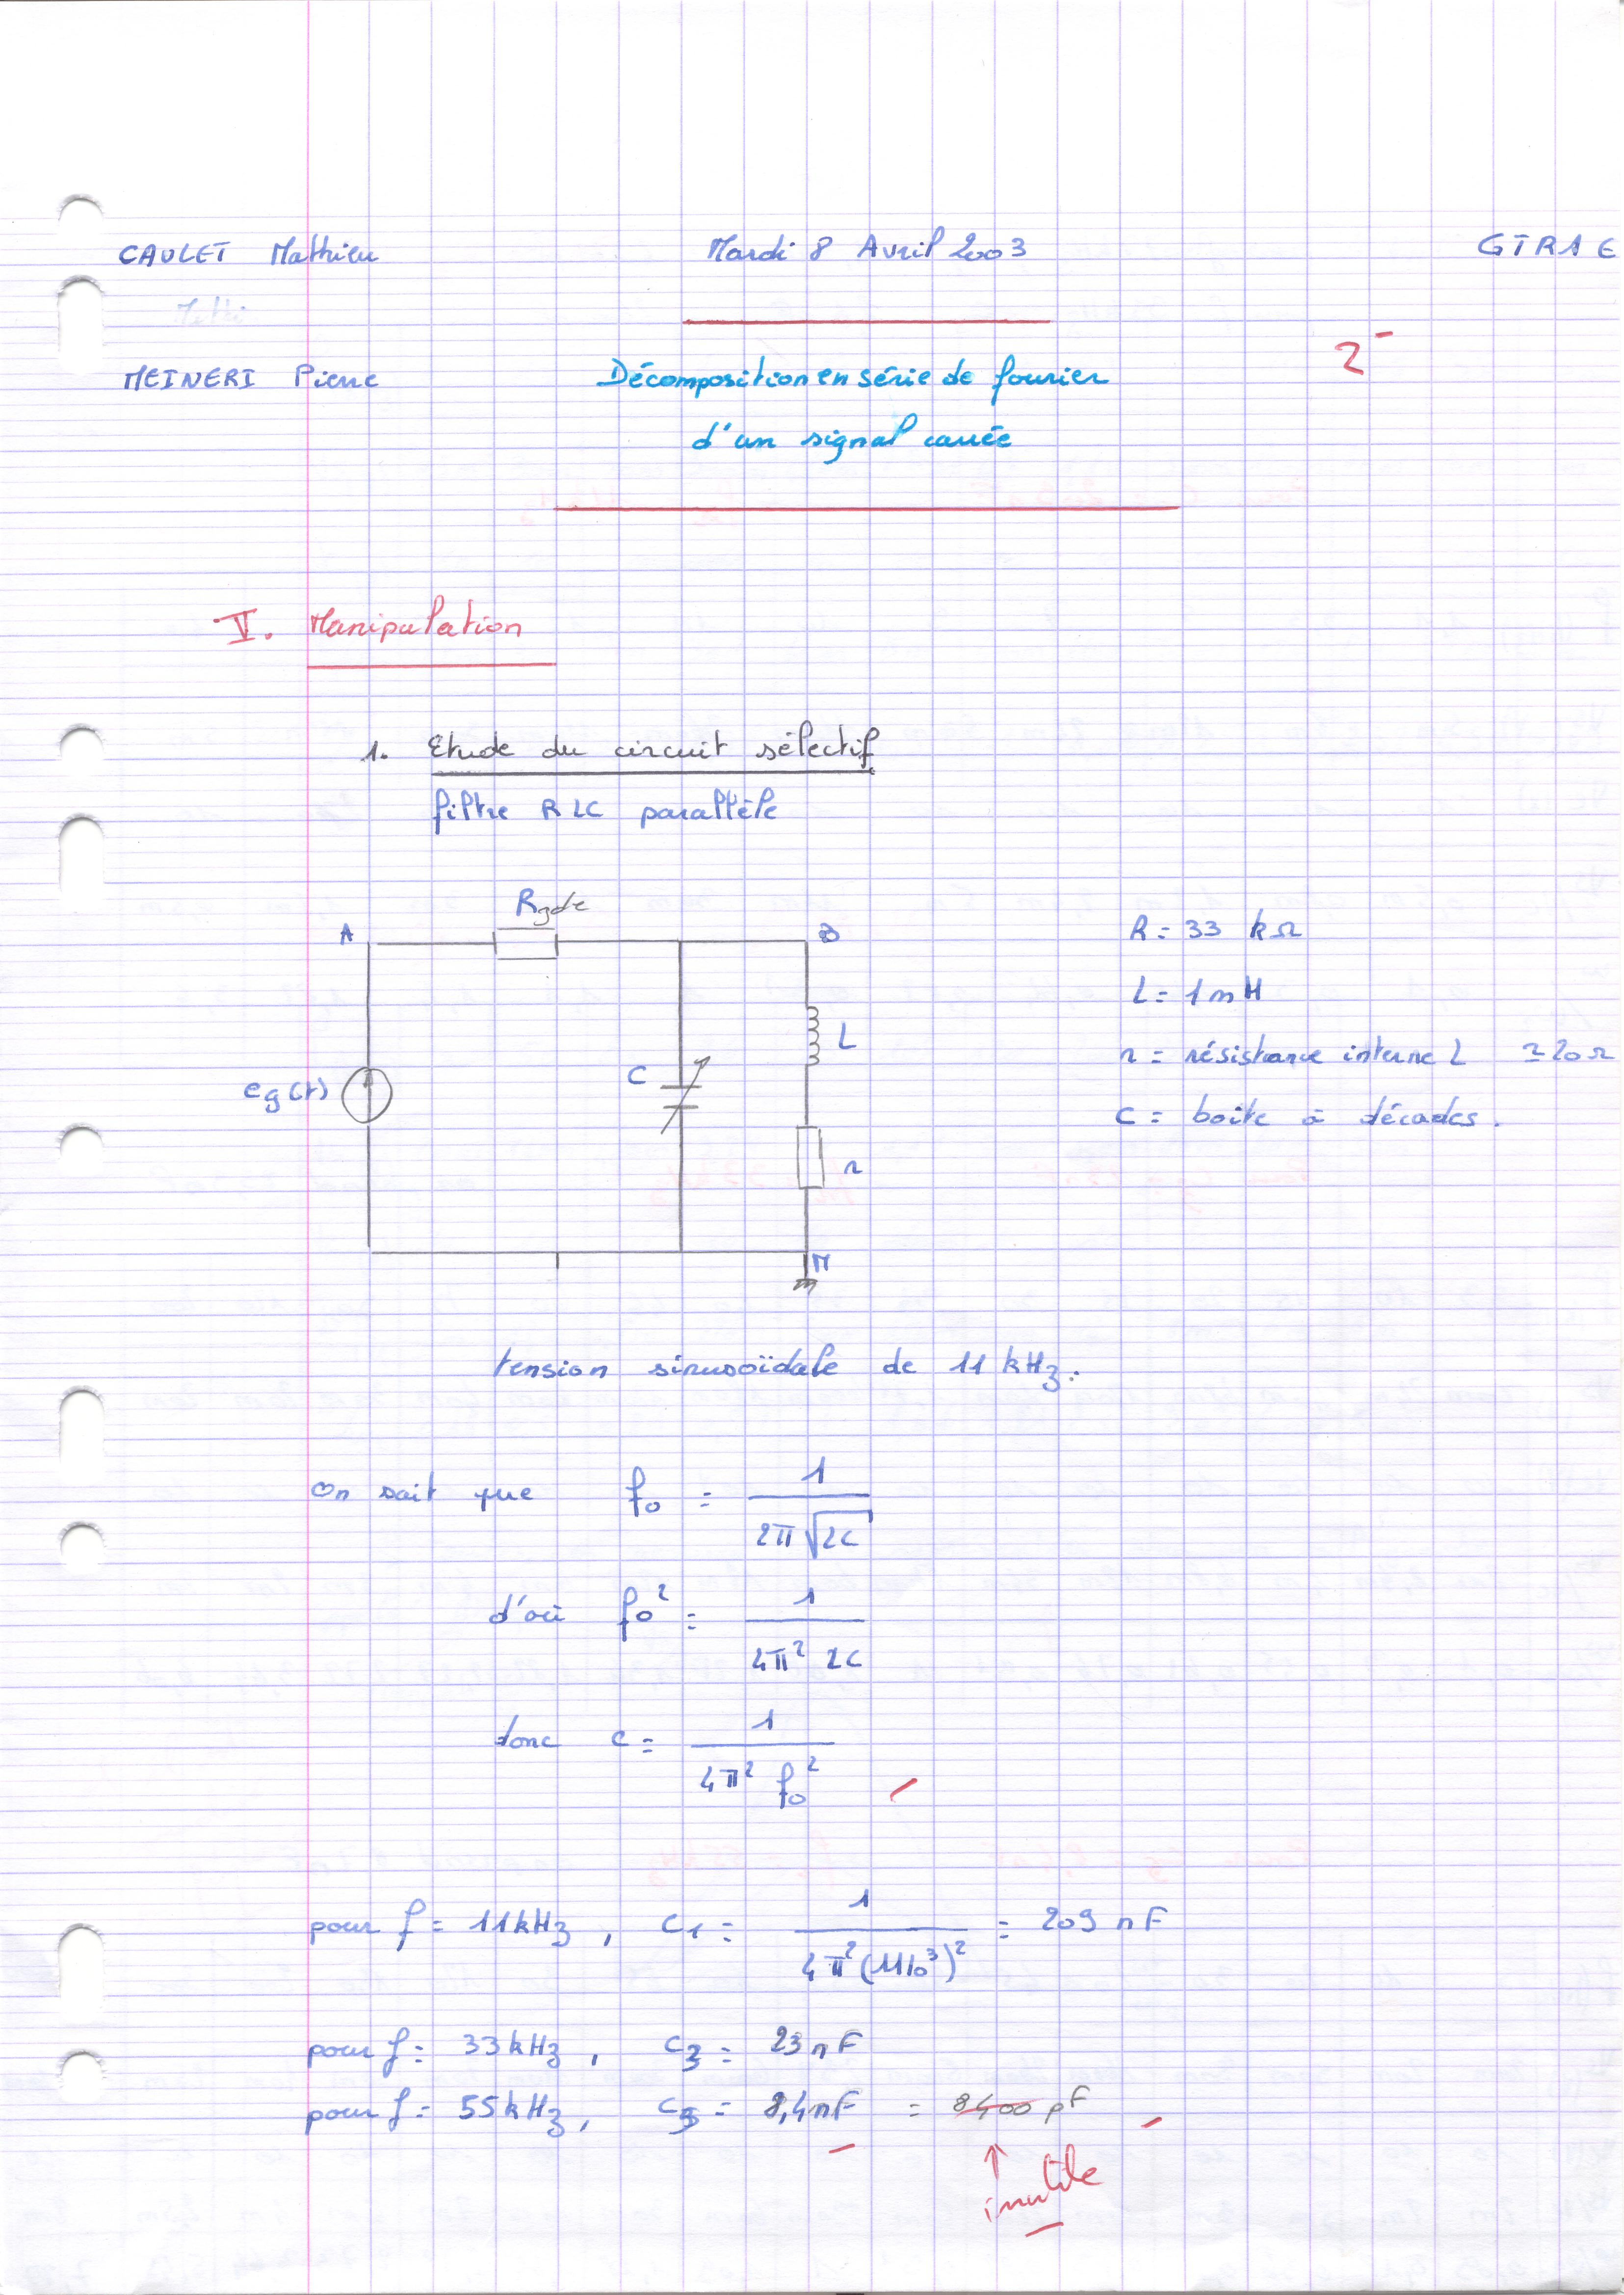 CAULET Mathieu Mardi 8 Avril 2003 GTRA E
MEINERI Pierre Décomposition en série de fourier 2-
d'un signal carrée
V. Manipulation
1. Etude du circuit sélectif
filtre RLC parallèle
Rgde
A B
R = 33 kΩ
L = 1 mH
L
r = résistance interne L ≃ 20 Ω
C
eg(t)
C = boite à décades.
r
M
tension sinusoïdale de 11 kHz.
On sait que f0 = 1 / 2π√LC
d'où f0² = 1 / 4π² LC
donc C = 1 / 4π² f0²
pour f = 11kHz, C1 = 1 / 4π²(11 10³)² = 209 nF
pour f = 33kHz, C3 = 23 nF
pour f = 55kHz, C5 = 8,4 nF = 8400 pF
↑
inutile